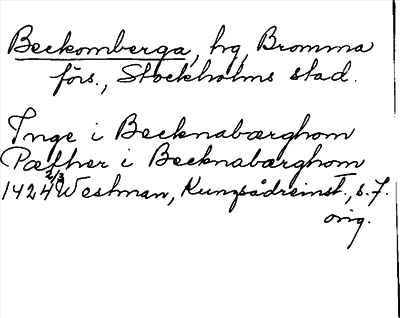 Beckomberga, hg, Bromma
förs., Stockholms stad.
Inge i Becknabærghom
Pæther i Becknabærghom
1424 2/3 Westman, Kungsådreinst., s. 7.
orig.